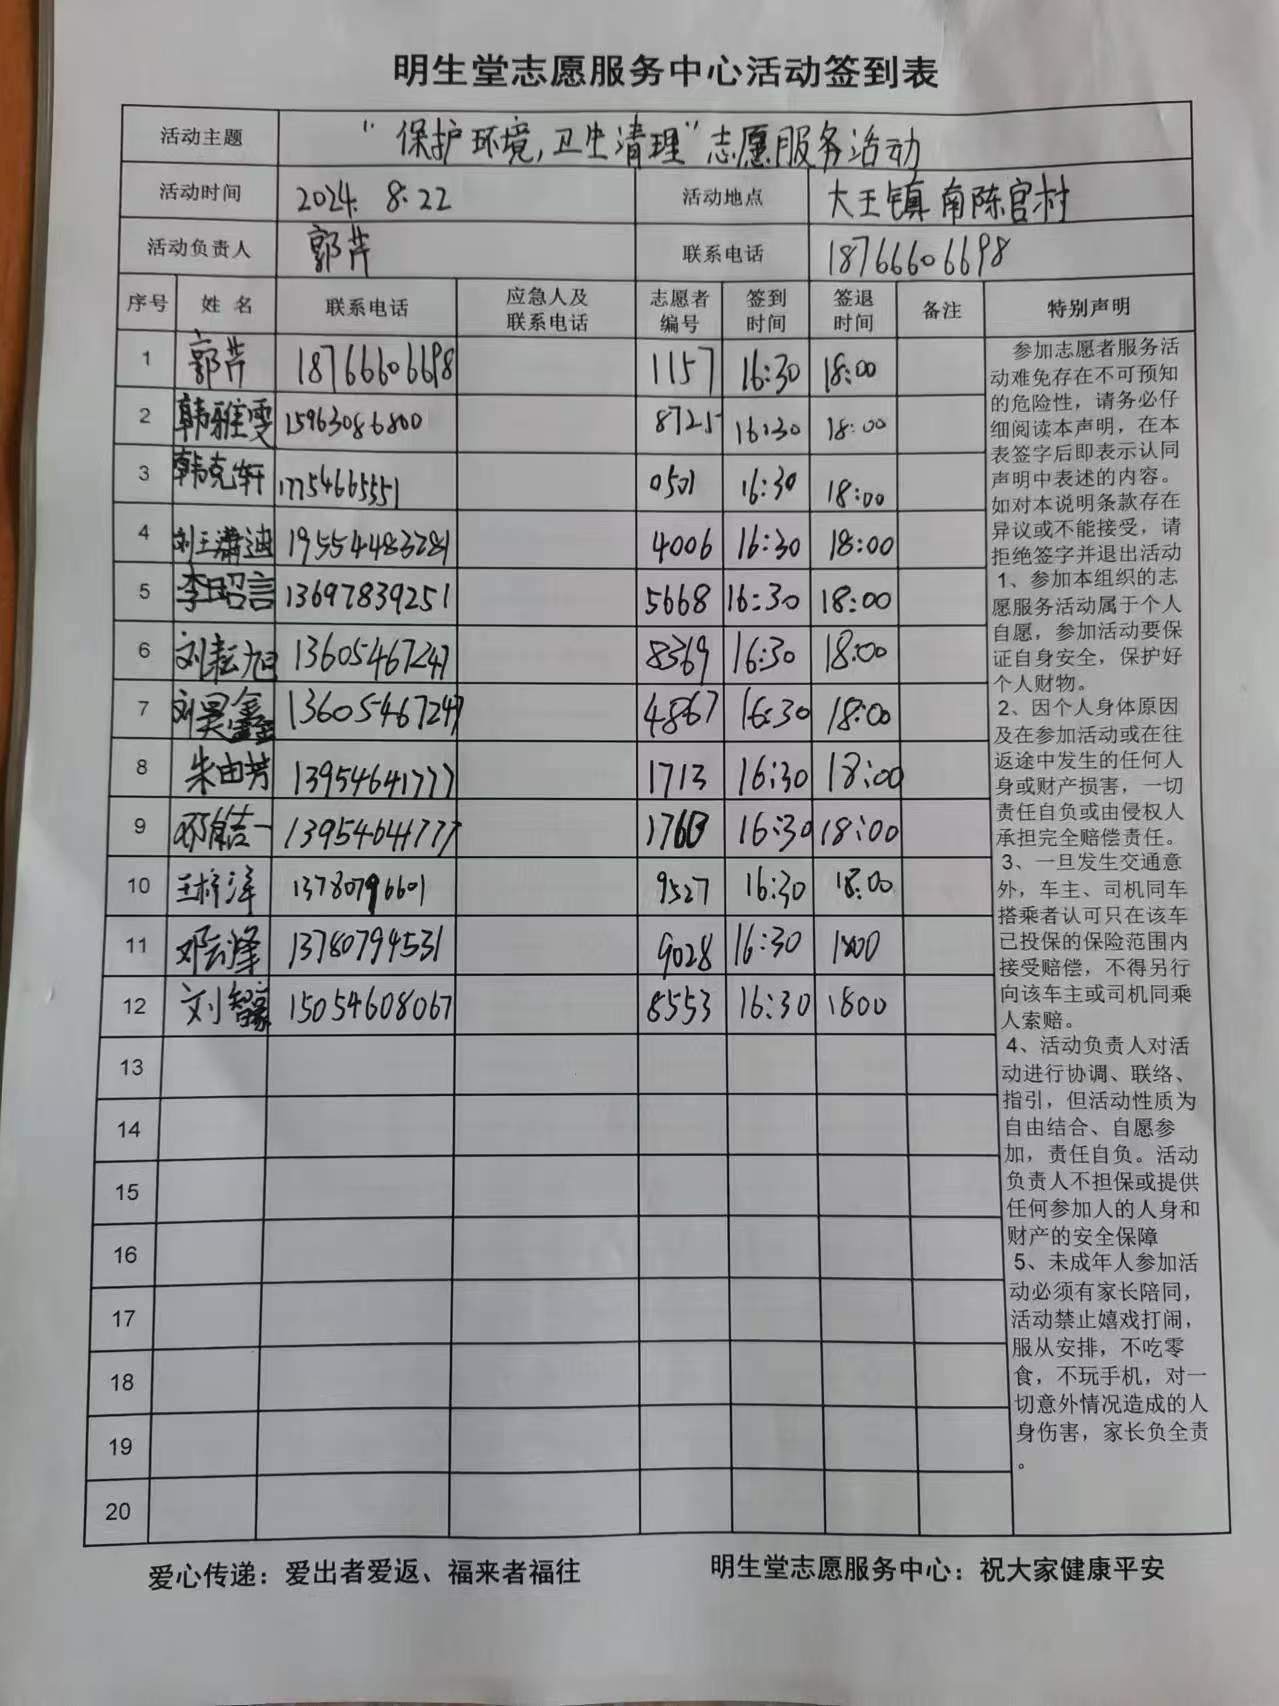 明生堂志愿服务中心活动签到表
活动主题 “保护环境,卫生清理”志愿服务活动
活动时间 2024. 8.22 活动地点 大王镇南陈官村
活动负责人 郭芹 联系电话 18766606698
序号 姓名 联系电话 应急人及联系电话 志愿者编号 签到时间 签退时间 备注 特别声明
1 郭芹 18766606698 1157 16:30 18:00
2 韩雅雯 15963086800 8725 16:30 18:00
3 韩克轩 17754665551 0501 16:30 18:00
4 刘王潇迪 19554483281 4006 16:30 18:00
5 李昭言 13697839251 5668 16:30 18:00
6 刘耘旭 13605467247 8369 16:30 18:00
7 刘昊鑫 13605467247 4867 16:30 18:00
8 朱由芳 13954641777 1713 16:30 18:00
9 邓皓一 13954641777 16:30 18:00
10 王梓洋 13780796601 9527 16:30 18:00
11 邓云峰 13780794531 9028 16:30 1800
12 刘智豪 15054608067 8553 16:30 1800
13
14
15
16
17
18
19
20
参加志愿者服务活
动难免存在不可预知
的危险性，请务必仔
细阅读本声明，在本
表签字后即表示认同
声明中表述的内容。
如对本说明条款存在
异议或不能接受，请
拒绝签字并退出活动
1、参加本组织的志
愿服务活动属于个人
自愿，参加活动要保
证自身安全，保护好
个人财物。
2、因个人身体原因
及在参加活动或在往
返途中发生的任何人
身或财产损害，一切
责任自负或由侵权人
承担完全赔偿责任。
3、一旦发生交通意
外，车主、司机同车
搭乘者认可只在该车
已投保的保险范围内
接受赔偿，不得另行
向该车主或司机同乘
人索赔。
4、活动负责人对活
动进行协调、联络、
指引，但活动性质为
自由结合、自愿参
加，责任自负。活动
负责人不担保或提供
任何参加人的人身和
财产的安全保障
5、未成年人参加活
动必须有家长陪同，
活动禁止嬉戏打闹，
服从安排，不吃零
食，不玩手机，对一
切意外情况造成的人
身伤害，家长负全责
。
爱心传递：爱出者爱返、福来者福往 明生堂志愿服务中心：祝大家健康平安